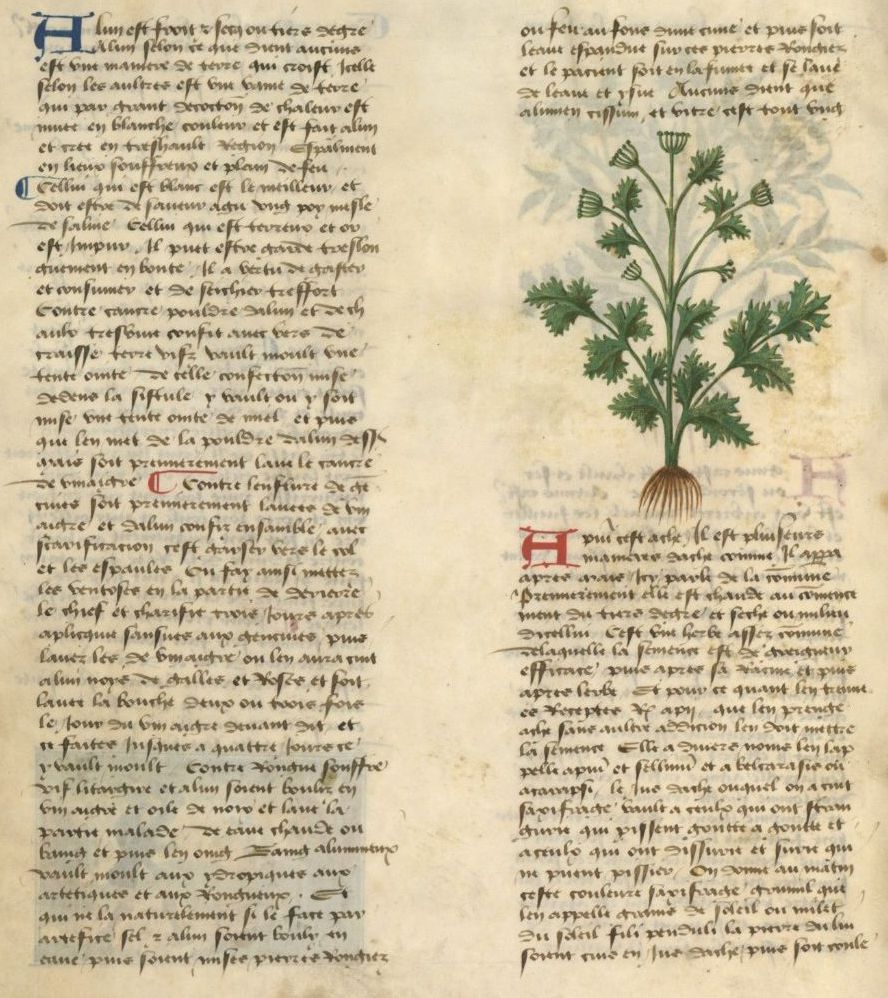 Alun est froit et secq ou tiers degre
Alun selon ce que dient aucuns
est vne maniere de terre qui croist Icelle
selon les aultres est vne vaine de terre
qui par grant decoction de chaleur est
muee en blanche couleur et est fait alun
et cree en treshault Region Espalment
en lieux souffreux et plain de feu
Cellui qui est blanc est le meilleur et
doit estre de saueur agu vng poy mesle
de saline Cellui qui est terreux et or
est Impur Il puet estre garde treslon
guement en bonte Il a vertu de gaster
et consumer et de seichier treffort
Contre cancre pouldre dalun et de ch
aulx tresviue confit auec vers de
craisse terre vifz vault moult vne
tente ointe de celle confection mise
dedens la fistule y vault ou y soit
mise vne tente ointe de miel et puis
que len met de la pouldre dalun dess
mais soit premierement laue le cancre
de vinaigre Contre lenflure de ge
ciues soit premierement lauees de vin
aigre et dalun confis ensamble auec
scarificacion cest garser vers le col
et les espaules Ou fay ainsi mettez
les ventoses en la partie de derriere
le chief et charifie trois Jours apres
aplicque sansues aux genciues puis
lauez les de vinaigre ou len aura cuit
alun noys de galles et Roses et soit
lauee la bouche deux ou trois fois
le Jour du vin aigre deuant dit et
ce faites Jusques a quattre Jours ce
y vault moult Contre Rongne souffre
vif litargire et alun soient boulis en
vin aigre et oile de noix et laue la
partie malade de eaue chaude ou
baing et puis len oing Baing alumineux
vault moult aux ydropiques aux
artetiques et aux Rongneux Et
qui ne la naturelement si le face par
artefice sel et alun soient boulis en
eaue puis soient mises pierres Rongiez
ou feu au fons dune cuue et puis soit
leaue espandue sur ces pierres Rongiez
et le pacient soit en la fumee et se laue
de leaue et ysue Aucuns dient que
alumen cissum et vitre cest tout vng
Apiu cest ache Il est pluiseurs
manieres dache comme Il appa
apres mais Icy parle de la comune
Premierement elle est chaude au comence
ment du tiers degre et seche ou milieu
dicellui Cest vne herbe assez comune
delaquelle la semence est de greigneur
efficace puis apres sa Racine et puis
apres lerbe Et pour ce quant len treuue
es Receptes Rx apii que len prenge
ache sans aultre addicion len doit mettre
la semence Elle a diuers noms len lap
pelle apiu et sellinu et a belcarasis ou
acarapsi le Jus dache ouquel on a cuit
saxifrage vault a ceulx qui ont stran
gurie qui pissent goutte a goutte et
a ceulx qui ont dissurie et surie qui
ne puent pissier On donne au matin
ceste couleure saxifrage gramil que
len appelle grains de soleil ou milet
du soleil fili penduli la pierre du lin
soient cuis en Jus dache puis soit coule